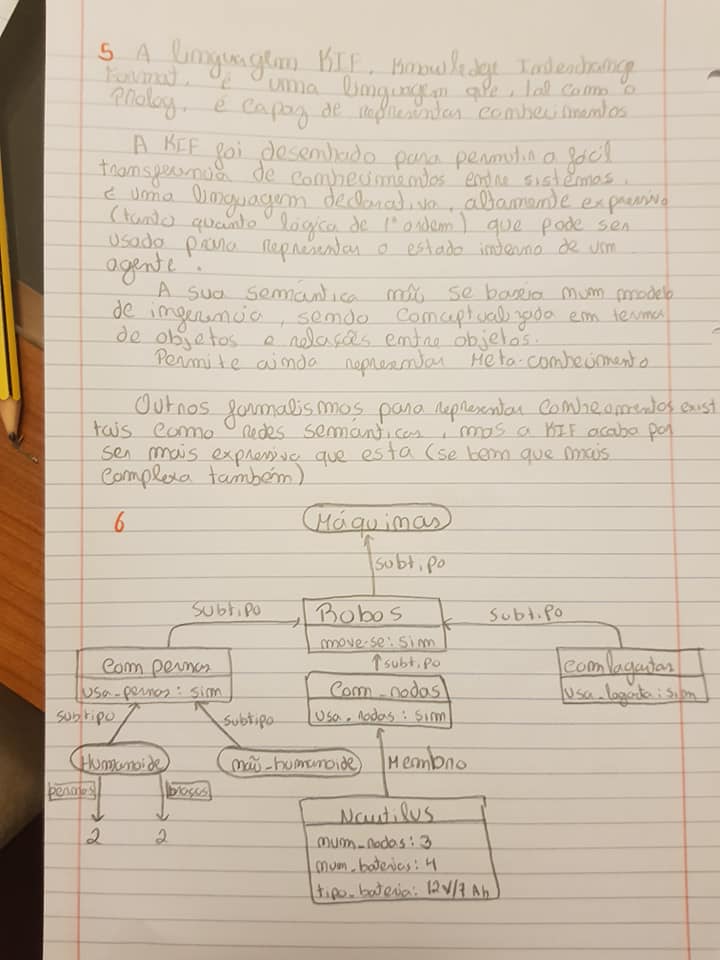 5 A linguagem KIF, Knowledge Interchange
Format, é uma linguagem que, tal como o
Prolog, é capaz de representar conhecimentos
A KIF foi desenhado para permitir a fácil
transferencia de conhecimentos entre sistemas.
é uma linguagem declarativa, altamente expressivo
(tanto quanto lógica de 1ª ordem) que pode ser
usado para representar o estado interno de um
agente.
A sua semântica não se baseia num modelo
de ingerencia, sendo conceptualizada em termo
de objetos e relações entre objetos.
Permite ainda representar Meta-conhecimento
Outros formalismos para representar conhecimentos exist
tais como redes semânticas, mas a KIF acaba por
ser mais expressiva que esta (se bem que mais
complexa também)
6
Máquinas
subtipo
subtipo
Robos
subtipo
move-se: sim
com pernas
subtipo
com lagartas
usa_pernas: sim
Com_rodas
usa_lagarta: sim
usa_rodas: sim
subtipo
subtipo
Humanoide
não_humanoide
Membro
pernas
braços
2
2
Nautilus
num_rodas: 3
num_baterias: 4
tipo_bateria: 12V/7Ah